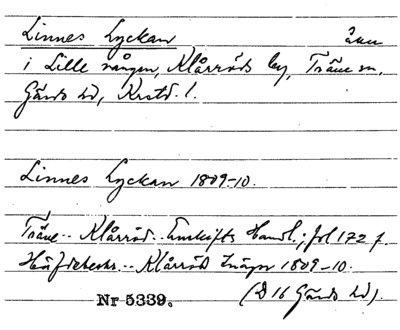 Linnes Lyckan åker
i Lille vången, Klårröds by, Träne sn,
Gärds hd, Krstd. l.
Linnes Lyckan 1809-10.
Träne.. Klårröd.. Enskifts Handl.; fol 172 f.
Häfdebeskr... Klårröds Enägor 1809-10.
Nr 5339. (D 16 Gärds hd).